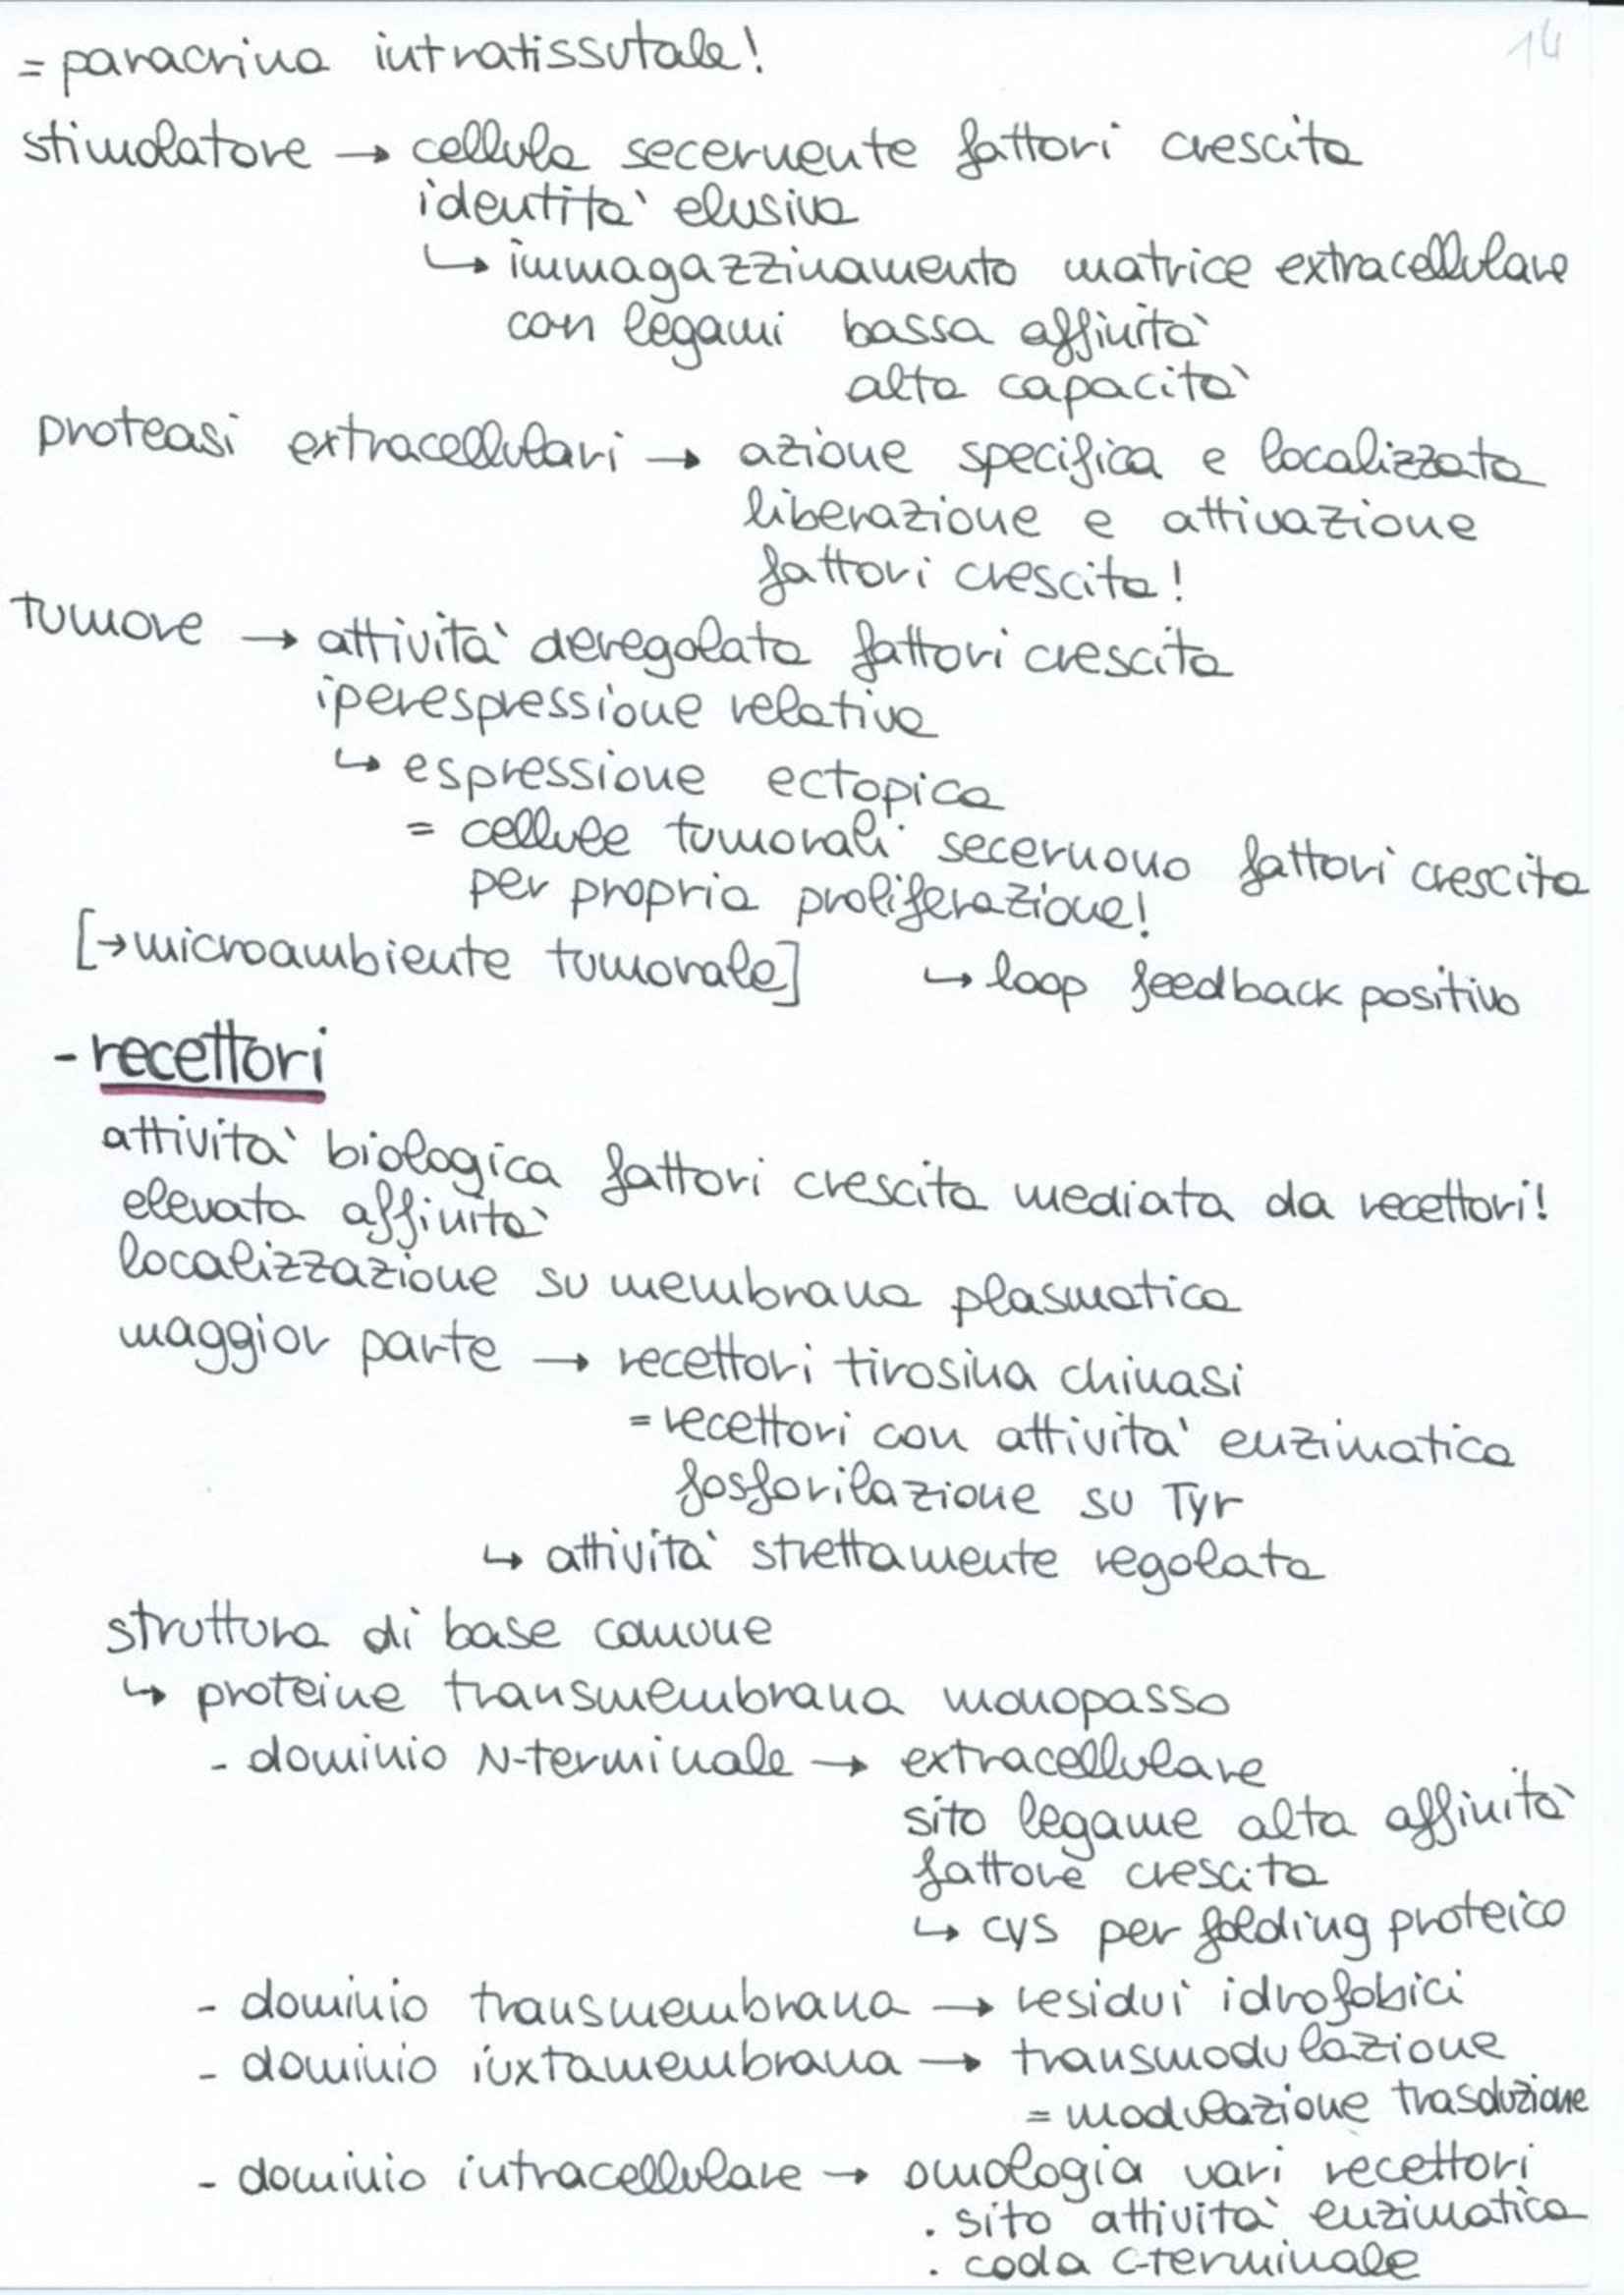 14
= paracrina intratissutale!
stimolatore → cellula secernente fattori crescita
identità elusiva
↳ immagazzinamento matrice extracellulare
con legami bassa affinità
alta capacità
proteasi extracellulari → azione specifica e localizzata
liberazione e attivazione
fattori crescita!
tumore → attività deregolata fattori crescita
iperespressione relativa
↳ espressione ectopica
= cellule tumorali secernono fattori crescita
per propria proliferazione!
[→ microambiente tumorale] ↳ loop feedback positivo
- recettori
attività biologica fattori crescita mediata da recettori!
elevata affinità
localizzazione su membrana plasmatica
maggior parte → recettori tirosina chinasi
= recettori con attività enzimatica
fosforilazione su Tyr
↳ attività strettamente regolata
struttura di base comune
↳ proteine transmembrana monopasso
- dominio N-terminale → extracellulare
sito legame alta affinità
fattore crescita
↳ cys per folding proteico
- dominio transmembrana → residui idrofobici
- dominio iuxtamembrana → transmodulazione
= modulazione trasduzione
- dominio intracellulare → omologia vari recettori
. sito attività enzimatica
. coda C-terminale